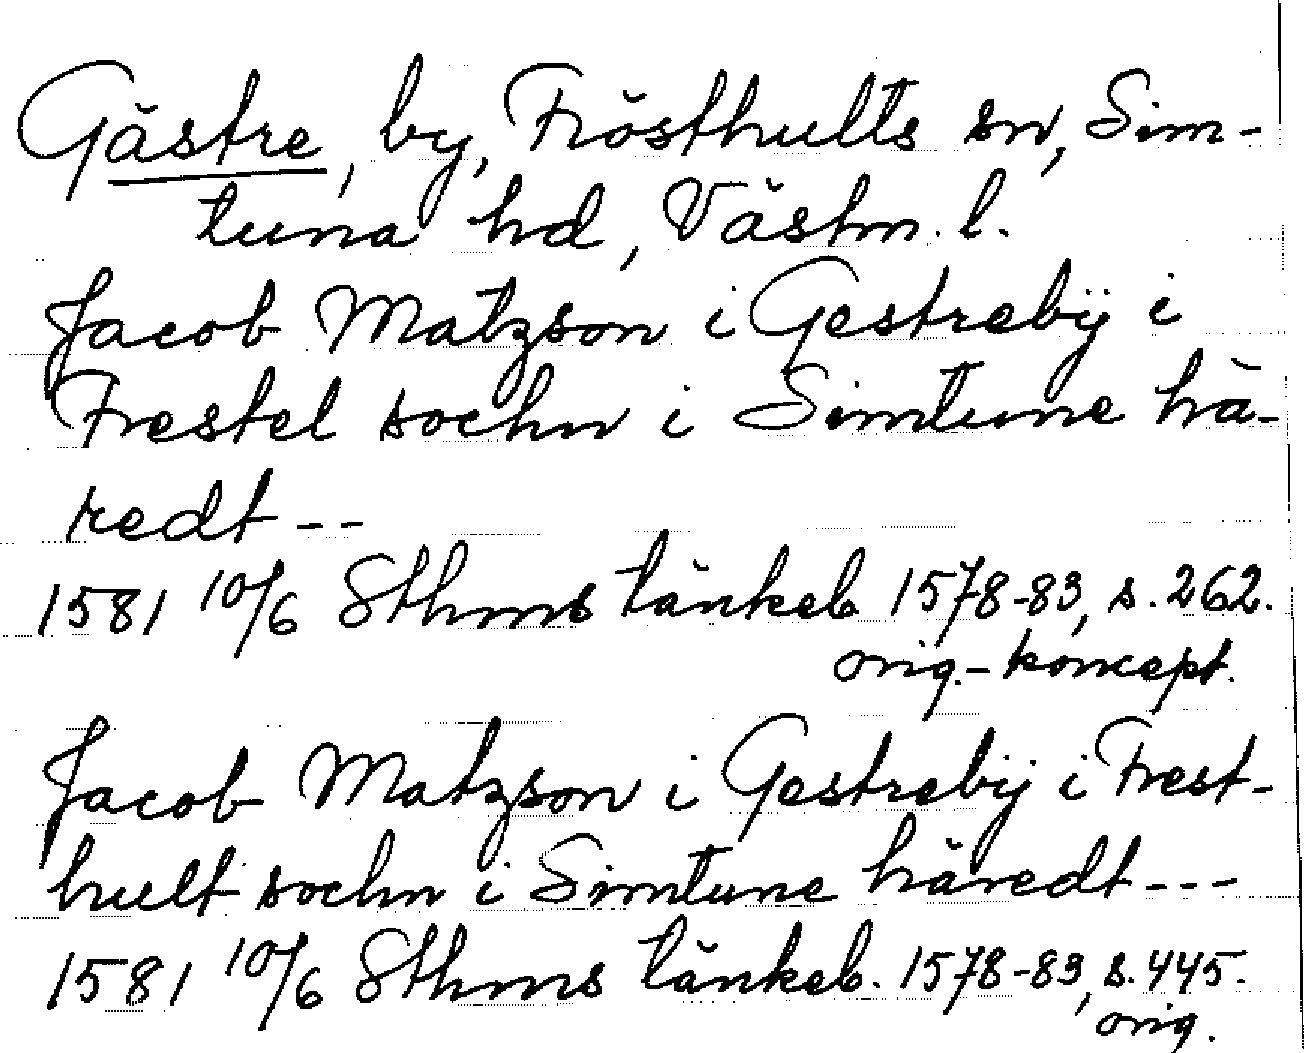 Gästre, by, Frösthults sn, Sim-
tuna hd, Västm. l.
Jacob Matzson i Gestrebÿ i
Frestel sochn i Simtune hä-
redt --
1581 10/6 Sthms tänkeb 1578-83, s. 262.
orig.-koncept.
Jacob Matzson i Gestrebÿ i Frest-
hult sochn i Simtune häredt ---
1581 10/6 Sthms tänkeb. 1578-83, s. 445.
orig.